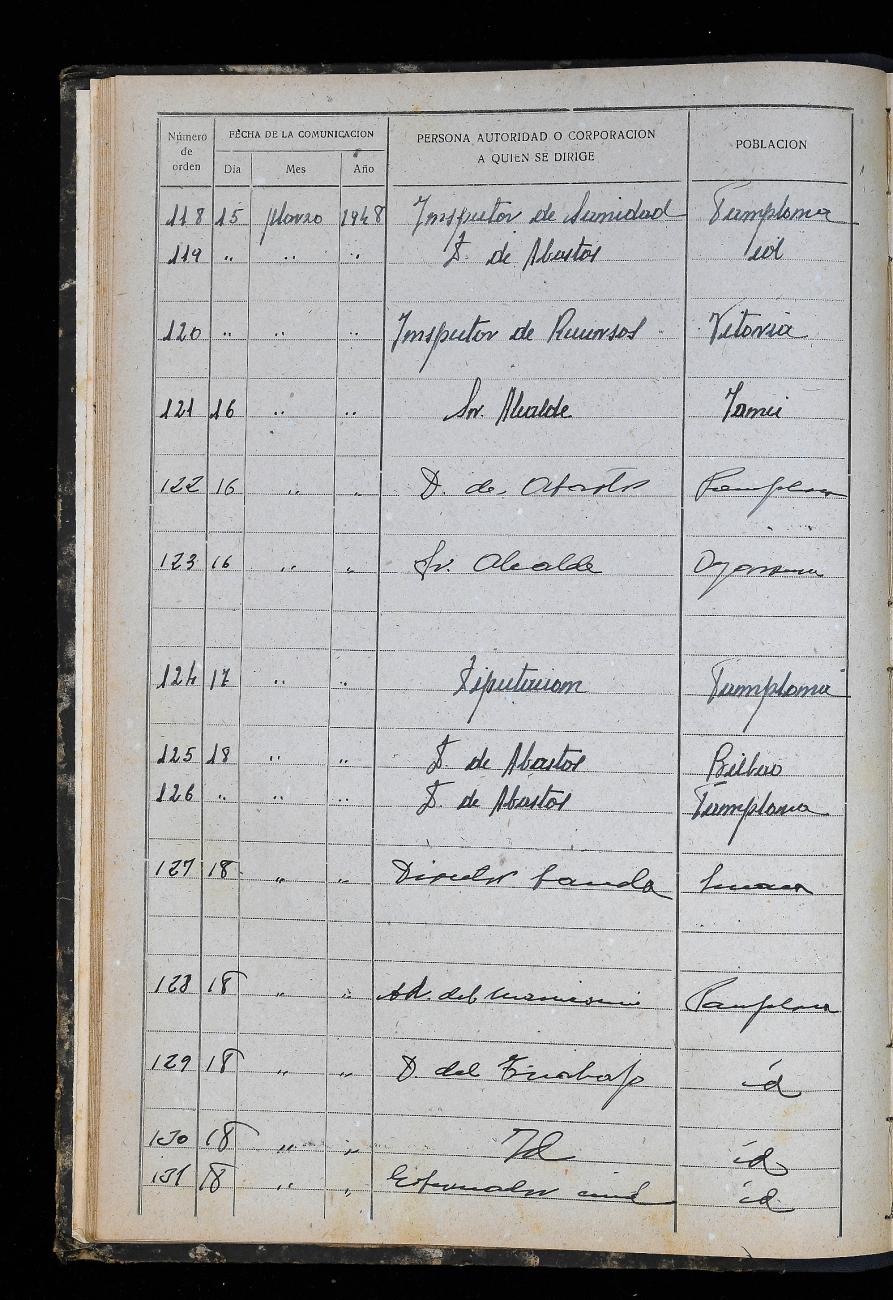 Número de orden FECHA DE LA COMUNICACION PERSONA AUTORIDAD O CORPORACION A QUIEN SE DIRIGE POBLACION
Día Mes Año
118 15 Marzo 1948 Inspector de Sanidad Pamplona
119 " " " D. de Abastos id
120 " " " Inspector de Recursos Vitoria
121 16 " " Sr. Alcalde
122 16 " " D. de Abastos Pamplona
123 16 " " Sr. Alcalde
124 17 " " Diputacion Pamplona
125 18 " " D. de Abastos Bilbao
126 " " " D. de Abastos Pamplona
127 18 " " Director banda
128 18 " " Ad. del Manicomio Pamplona
129 18 " " D. del Trabajo id
130 18 " " Id id
131 18 " " Gobernador civil id